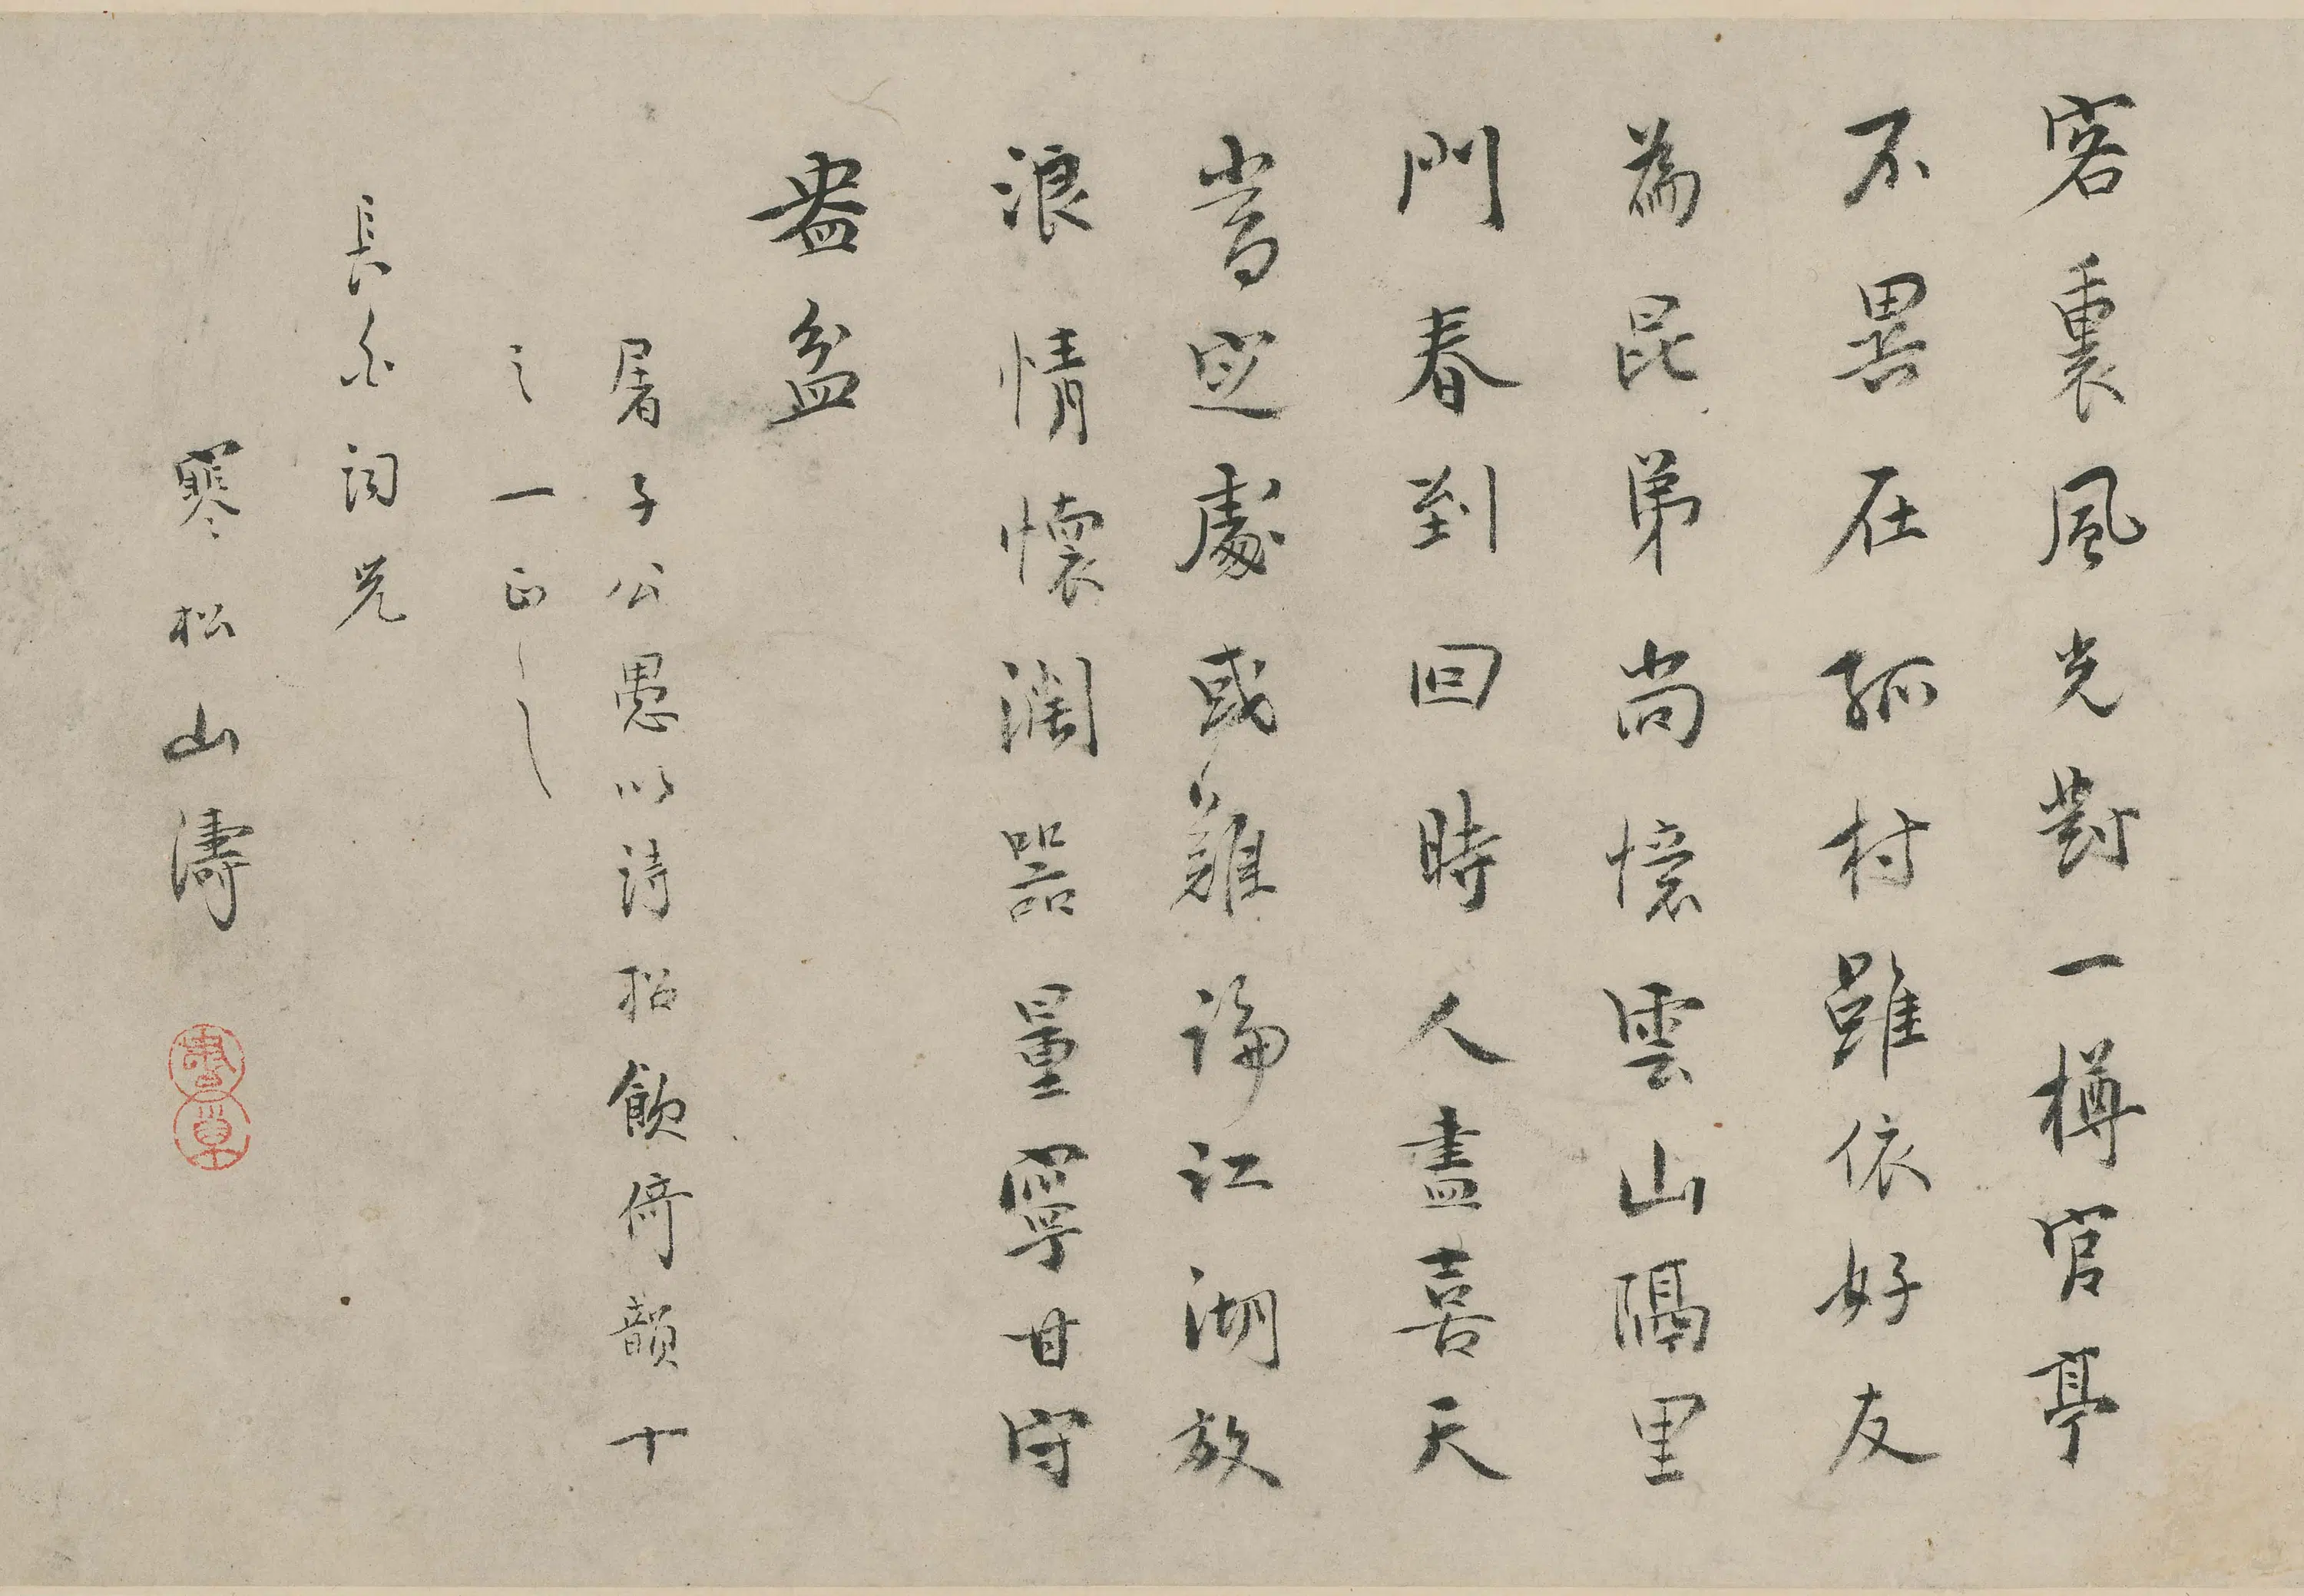 客裏風光對一樽官亭
不異在孤村雖依好友
為昆弟尚憶雲山隔里
門春到回時人盡喜天
當定處或難論江湖放
浪情懷濶器量寧甘守
盎盆
屠子公愚以詩招飲倚韻十
之一正
長尒詞兄
寒松山濤